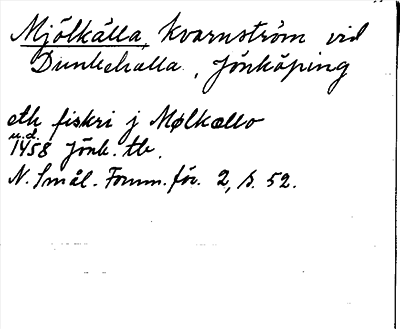 Mjölkälla, kvarnström vid
Dunkehalla, Jönköping
eth fiskri j Mølkællo
u.d.
1458 Jönk. tb.
N. Smål. Fornm. för. 2, s. 52.